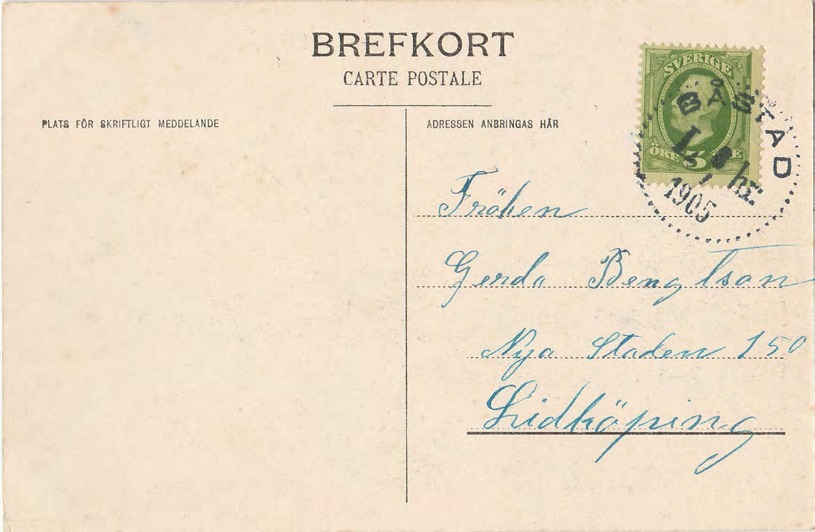 BREFKORT
CARTE POSTALE
PLATS FÖR SKRIFTLIGT MEDDELANDE
ADRESSEN ANBRINGAS HÄR
SVERIGE
ÖRE 5
BÅSTAD
1905
Fröken
Gerda Bengtson
Nya Staden 150
Lidköping